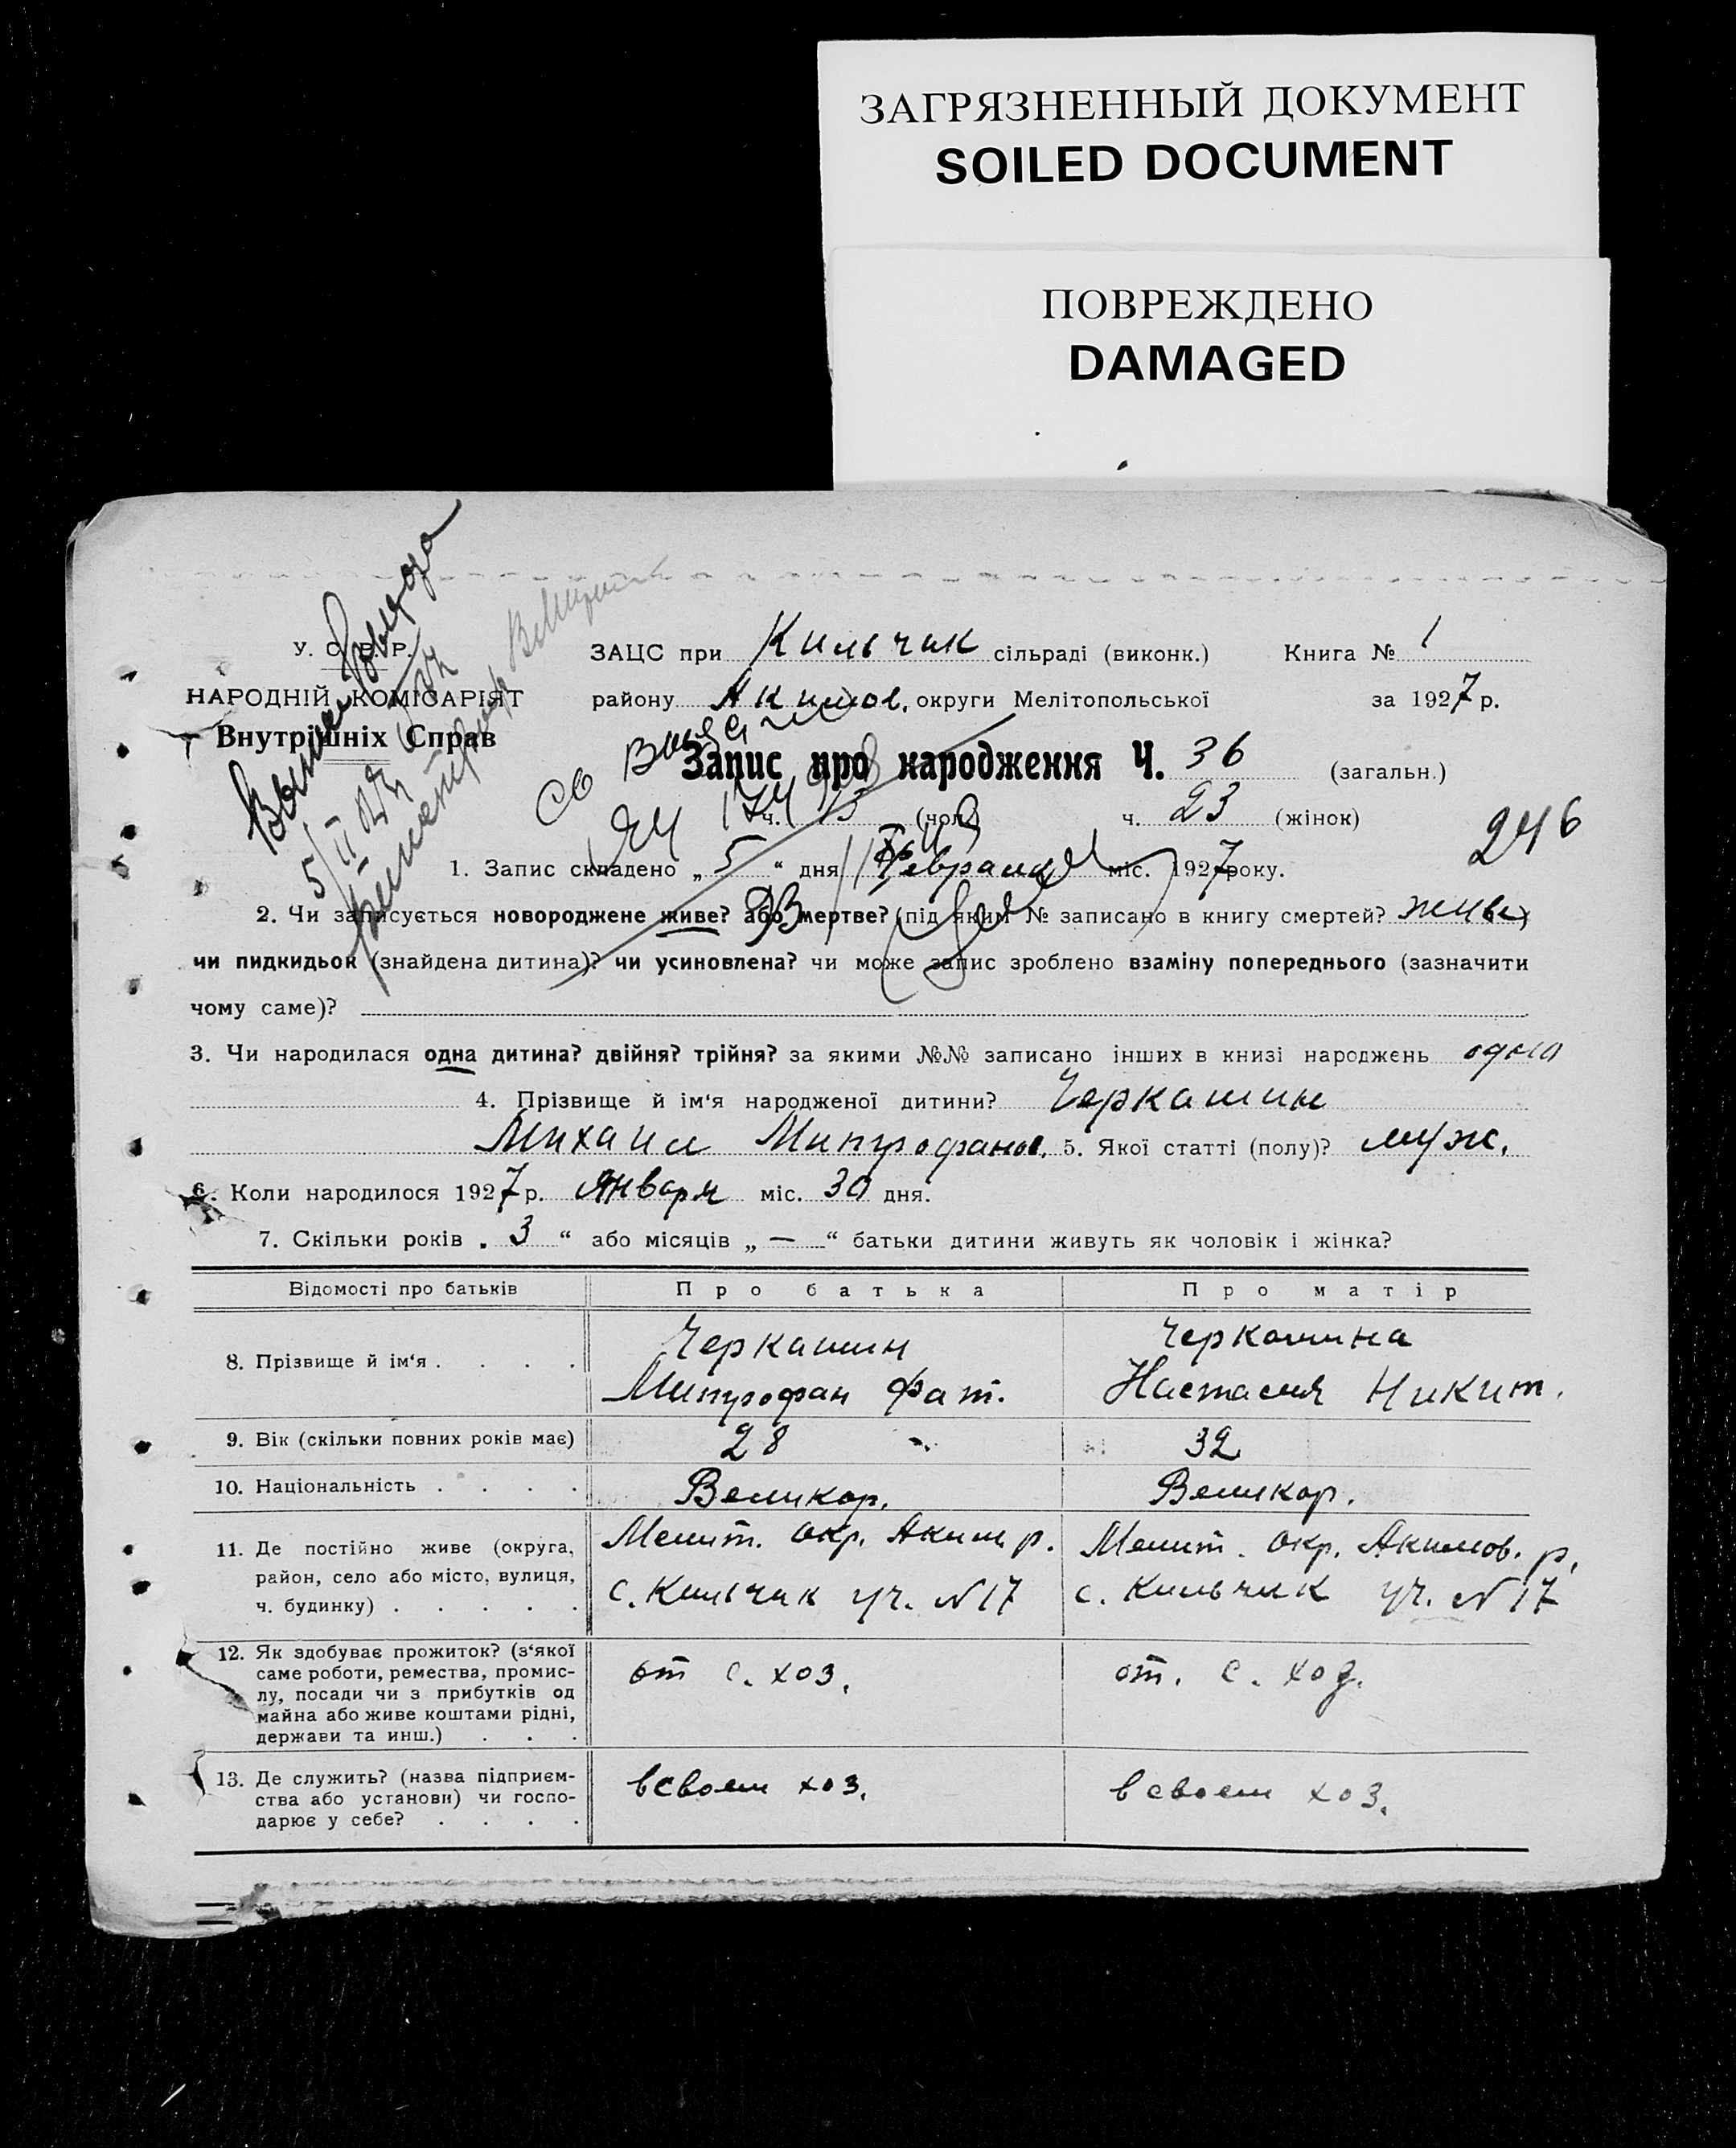 ЗАГРЯЗНЕННЫЙ ДОКУМЕНТ
SOILED DOCUMENT
ПОВРЕЖДЕНО
DAMAGED
У. С. Р. Р.
НАРОДНІЙ КОМІСАРІЯТ
Внутрішніх Справ
ЗАЦС при Кильчик сільраді (виконк.) Книга № 1
району Акимов. округи Мелітопольської за 1927 р.
Запис про народження Ч. 36 (загальн.)
ч. 13 (чол.) ч. 23 (жінок)
246
1. Запис складено „ 5 “ дня Февраля міс. 1927 року.
2. Чи записується новороджене живе? або мертве? (під яким № записано в книгу смертей? живе)
чи пидкидьок (знайдена дитина)? чи усиновлена? чи може запис зроблено взаміну попереднього (зазначити
чому саме)?
3. Чи народилася одна дитина? двійня? трійня? за якими №№ записано інших в книзі народжень одна
4. Прізвище й ім‘я народженої дитини? Черкашин
Михаил Митрофанов. 5. Якої статті (полу)? муж.
6. Коли народилося 1927 р. Января міс. 30 дня.
7. Скільки років „ 3 “ або місяців „ — “ батьки дитини живуть як чоловік і жінка?
Відомості про батьків Про батька Про матір
8. Прізвище й ім‘я . . . .
Черкашин
Митрофан Фат.
Черкашина
Настасия Никит.
9. Вік (скільки повних років має) 28 32
10. Національність . . . . Великор. Великор.
11. Де постійно живе (округа,
район, село або місто, вулиця,
ч. будинку) . . . . .
Мелит. окр. Аким р.
с. Кильчик уч. N 17
Мелит. окр. Акимов. р.
с. Кильчик уч. N 17
12. Як здобуває прожиток? (з‘якої
саме роботи, ремества, промис-
лу, посади чи з прибутків од
майна або живе коштами рідні,
держави та инш.) . . .
от с. хоз.
от. с. хоз.
13. Де служить? (назва підприєм-
ства або установи) чи госпо-
дарює у себе? . . . .
в своем хоз.
в своем хоз.